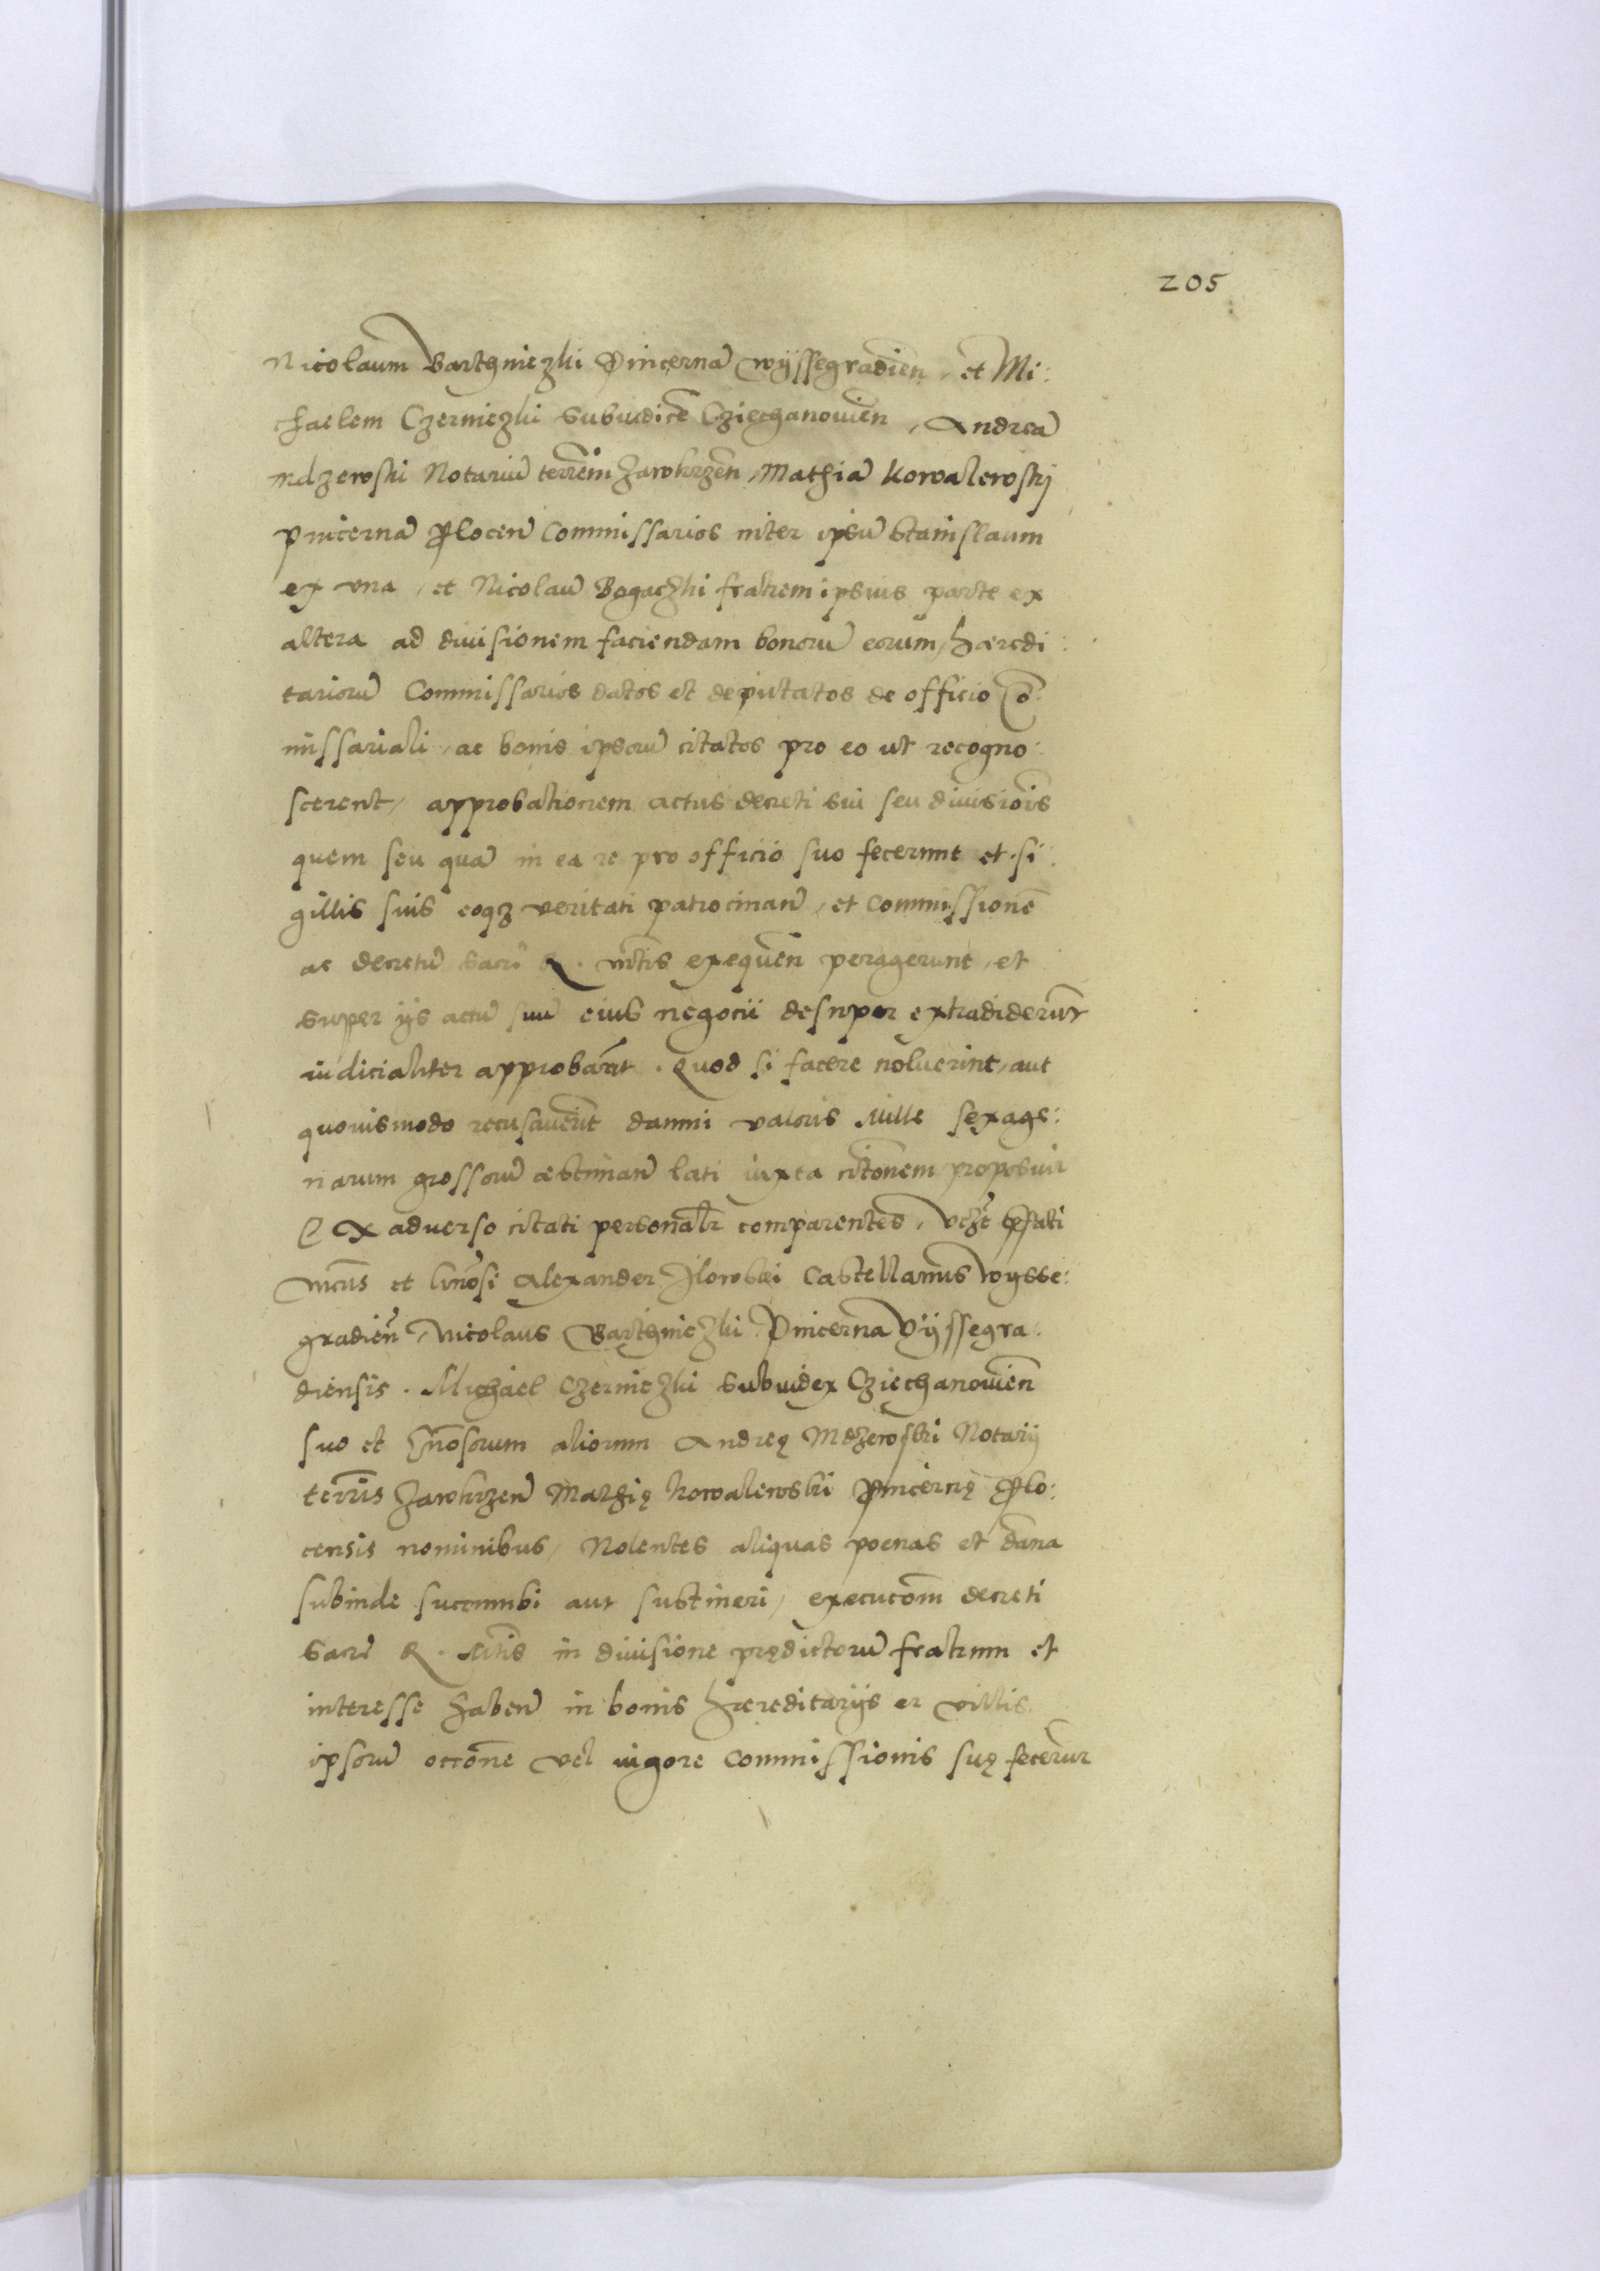 205
Nicolaum Bartgniczki Pincernã Wyssegradien̄, et Mi:
chaelem Czerniczki Subiudicẽ Cziechanouien̄, Andreã
Mdzewski Notariũ terren̄ Zawkrzen̄, Mathiã Kowalewskj
Pincernã Plocen̄ Commissarios inter ipsũ Stanislaum
ex vna, et Nicolaũ Bogaczki fratrem ipsius parte ex
altera ad diuisionem faciendam bonorũ eorum, hæredi:
tariorũ Commissarios datos et deputatos de officio Cõ
missariali, ac bonis ipsorũ citatos pro eo ut recogno:
scerent, approbationem actus decreti sui seu diuisiõis
quem seu quã in ea re pro officio suo fecerunt et si:
gillis suis eoqz veritati patrocinan̄, et Commissionẽ
ac decretũ Sacrę R. Mtis exequen̄ peragerunt, et
super ijs actũ suũ eius negocii desuper extradiderũt
iudicialiter approbarẽt. Quod si facere noluerint, aut
quouismodo recusauerĩt damni valoris Mille sexage:
narum grossorũ æstiman̄ lati iuxta citõnem proposuit
Ex aduerso citati personalr̄ comparentes, vczt p̄fati
Mcus et Gn̄osi Alexander Ilowski Castellanus Wysse:
gradien̄, Nicolaus Bartgniczki Pincerna Vyssegra:
diensis. Michael Czerniczki Subiudex Cziechanouien̄
suo et Gn̄osorum aliorum Andreę Mdzewski Notarij
terris Zawkrzen̄ Mathię Kowalewski Pincernę Plo:
censis nominibus, Nolentes aliquas poenas et dãna
subinde succumbi aut sustineri, executõm decreti
Sacrę R. Mtis in diuisione prędictorũ fratrum et
interesse haben̄ in bonis hæreditarijs et villis
ipsorũ occõne vel uigore Commissionis suę fecerũt